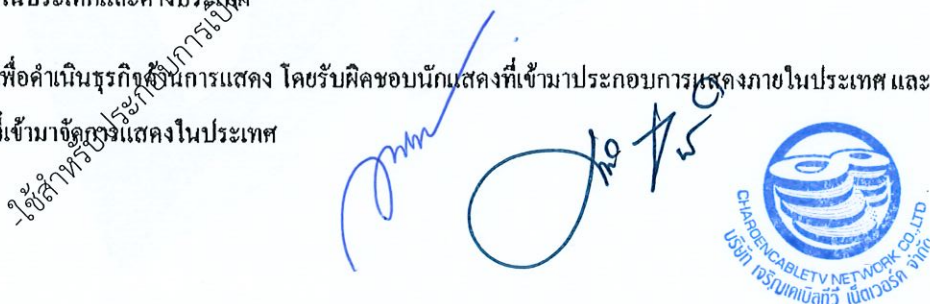 ในประเทศและต่างประเทศ
เพื่อดำเนินธุรกิจด้านการแสดง โดยรับผิดชอบนักแสดงที่เข้ามาประกอบการแสดงภายในประเทศ และ
ที่เข้ามาจัดการแสดงในประเทศ
-ใช้สำหรับประกอบการเปิด
CHAROENCABLETV NETWORK CO.,LTD.
บริษัท เจริญเคเบิลทีวี เน็ตเวอร์ค จำกัด